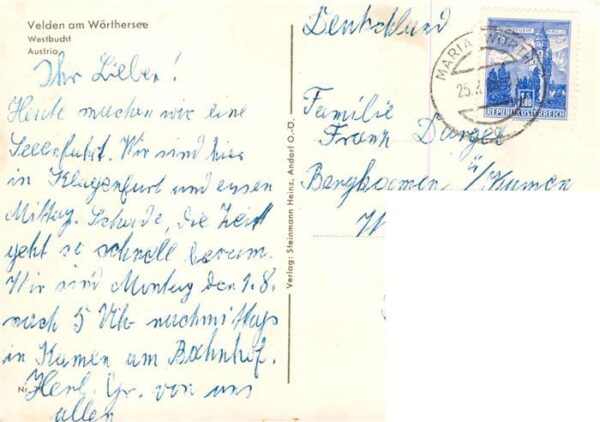 Velden am Wörthersee
Westbucht
Austria
Ihr Lieben!
Heute machen wir eine
Seenfahrt. Wir sind hier
in Klagenfurt und essen
Mittag. Schade, die Zeit
geht so schnell herum.
Wir sind Montag den 1.8.
nach 5 Uhr nachmittags
in Kamen am Bahnhof.
Herl. Gr. von uns
allen
Nr.
Verlag: Steinmann Heinz, Andorf O.-Ö.
Deutschland
MARIA WÖRTH
25.
REPUBLIK ÖSTERREICH
Familie
Franz
Bergkamen ü/Kamen
W